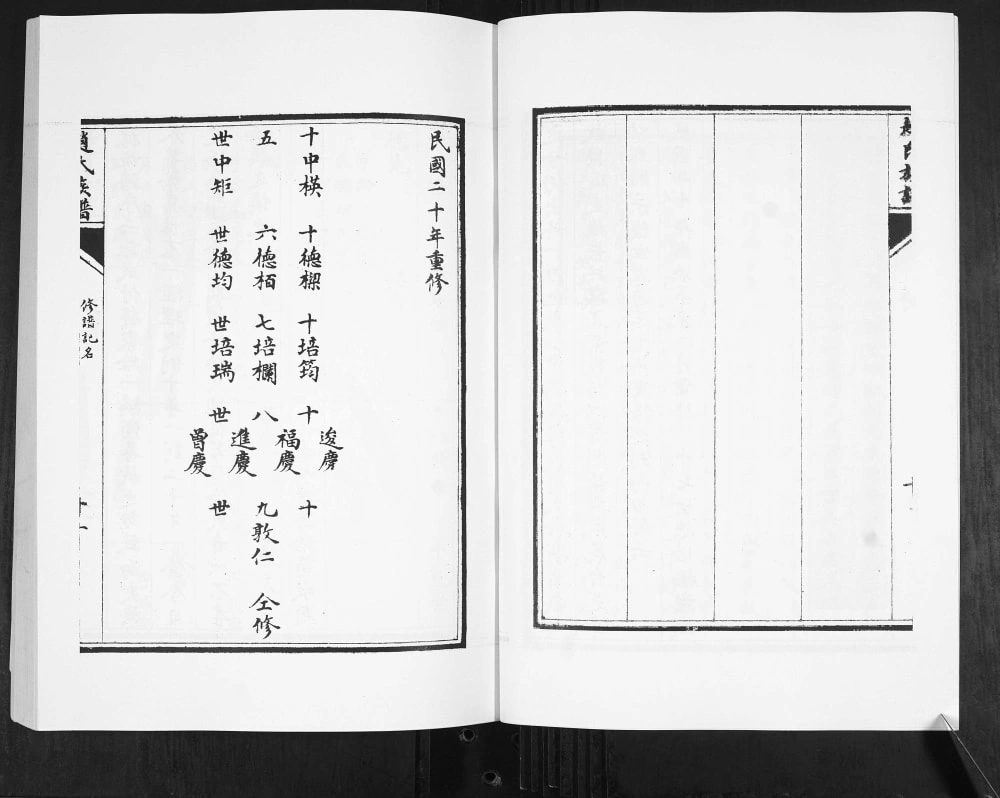 民國二十年重修
十中楧 十德樑 十培筠 十 十
逡慶
福慶
五 六德栢 七培欄 八 九敦仁 仝修
進慶
曾慶
世中矩 世德均 世培瑞 世 世
趙氏族譜
修譜記名
十一